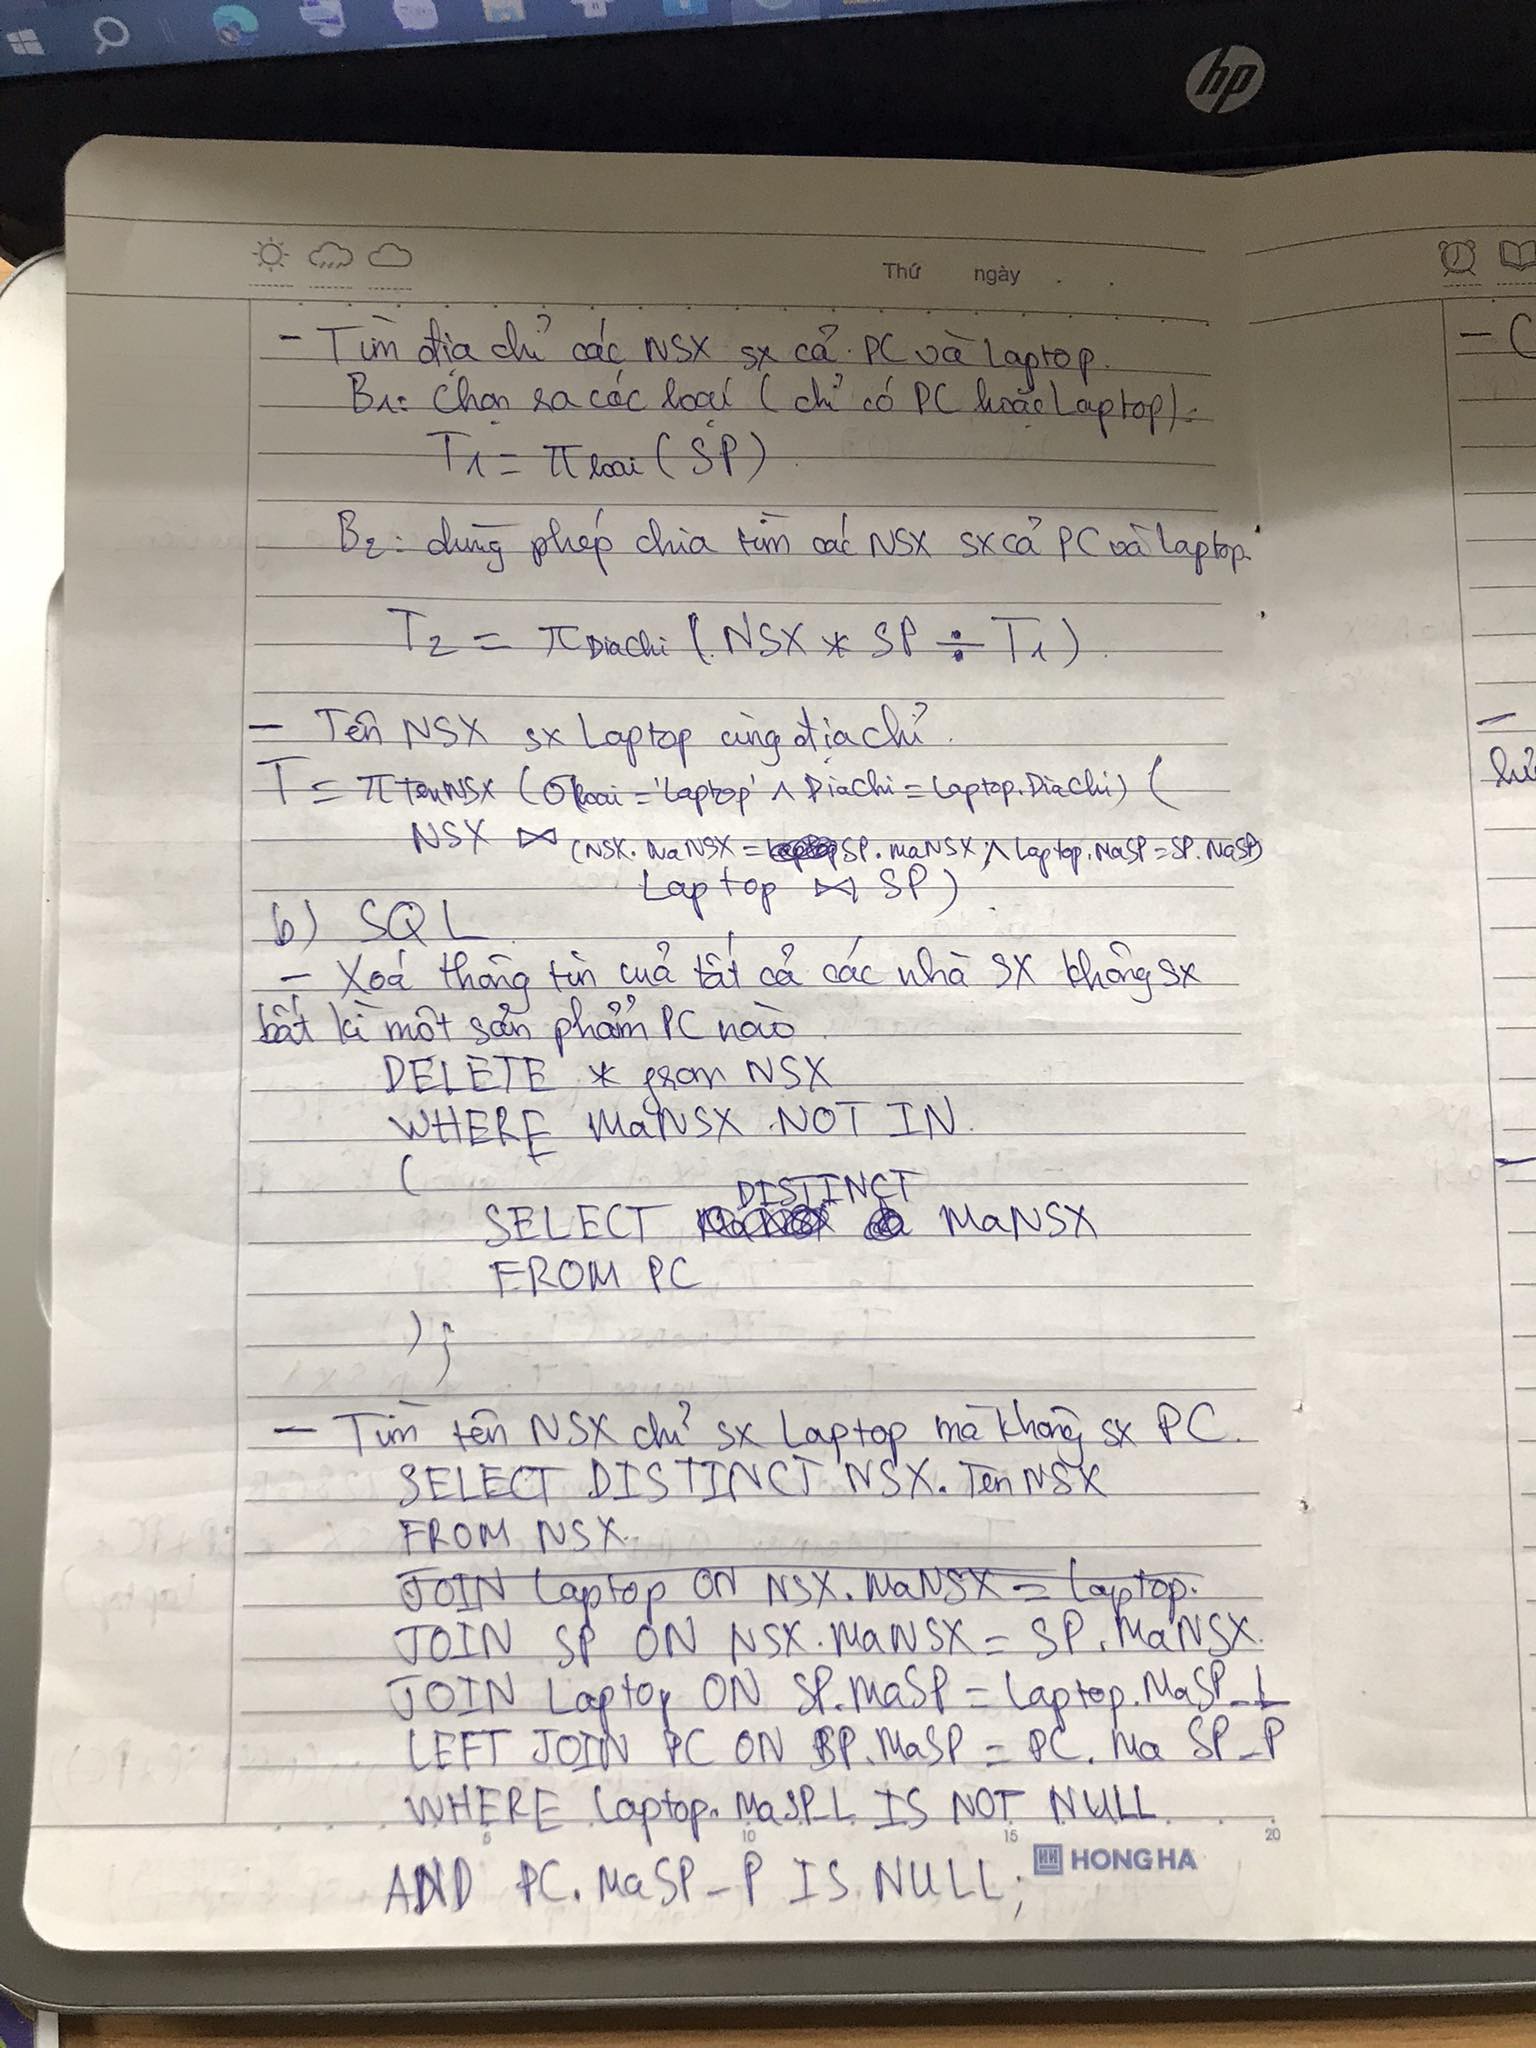 hp
Thứ ngày
- Tìm địa chỉ các NSX sx cả PC và Laptop.
B1: Chọn ra các loại (chỉ có PC hoặc Laptop).
T1 = π loai (SP)
B2: dùng phép chia tìm các NSX sx cả PC và Laptop.
T2 = π Diachi (NSX * SP ÷ T1)
- Tên NSX sx Laptop cùng địa chỉ.
T = π TenNSX (σ loai = 'Laptop' ∧ Diachi = Laptop.Diachi) (
NSX ⋈ (NSX.MaNSX = SP.maNSX ∧ Laptop.MaSP = SP.MaSP)
Laptop ⋈ SP)
b) SQL
- Xoá thông tin của tất cả các nhà SX không sx
bất kì một sản phẩm PC nào.
DELETE * from NSX
WHERE MaNSX NOT IN
(
SELECT DISTINCT MaNSX
FROM PC
);
- Tìm tên NSX chỉ sx Laptop mà không sx PC.
SELECT DISTINCT NSX.TenNSX
FROM NSX
JOIN Laptop ON NSX.MaNSX = Laptop.
JOIN SP ON NSX.MaNSX = SP.MaNSX
JOIN Laptop ON SP.MaSP = Laptop.MaSP_L
LEFT JOIN PC ON SP.MaSP = PC.Ma SP_P
WHERE Laptop.MaSP_L IS NOT NULL
5 10 15 20
HONG HA
AND PC.MaSP_P IS NULL;
- C